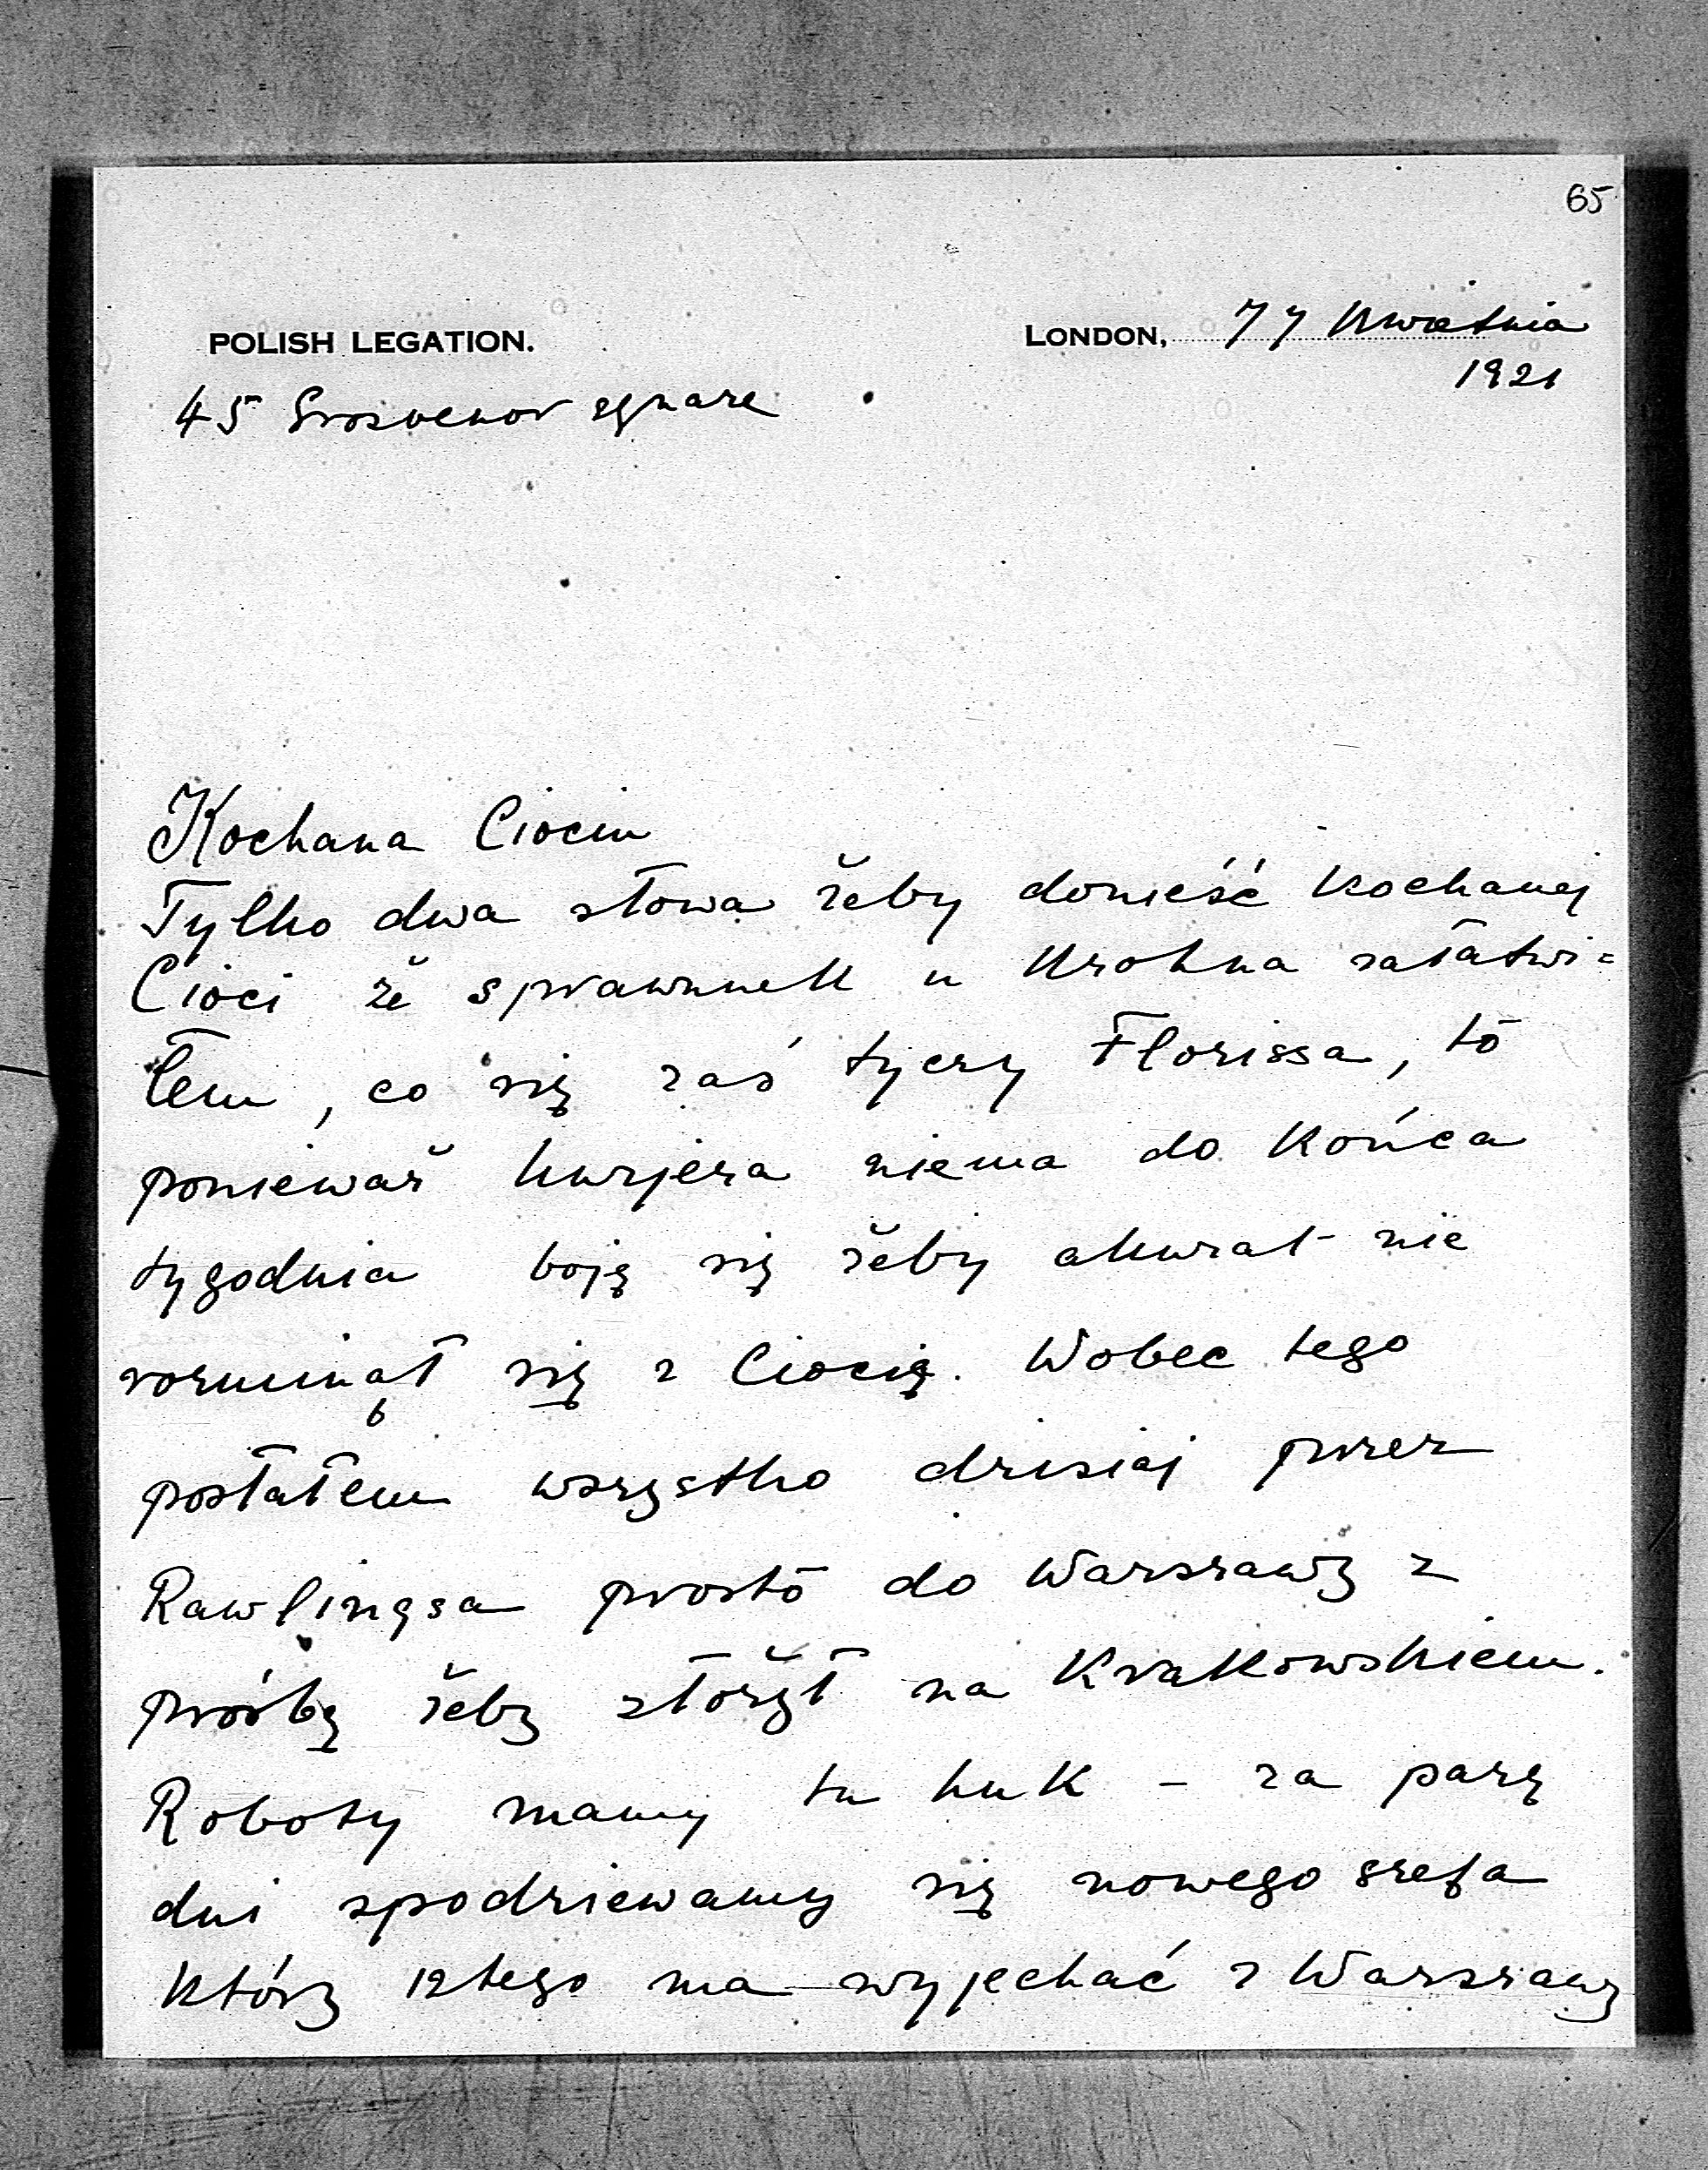 65
POLISH LEGATION.
LONDON, 77 Kwietnia
1921
45 Grosvenor square
Kochana Ciociu
Tylko dwa słowa żeby donieść Kochanej
Cioci że sprawunek u Krohna załatwi=
łem, co się zaś tyczy Florissa, to
ponieważ kurjera niema do Końca
tygodnia boję się żeby akurat nie
rozminął się z Ciocią. Wobec tego
posłałem wszystko dzisiaj przez
Rawlingsa prosto do Warszawy z
prośbą żeby złożył na Krakowskiem.
Roboty mamy tu huk – za parę
dni spodziewamy się nowego szefa
Który 12tego ma wyjechać z Warszawy